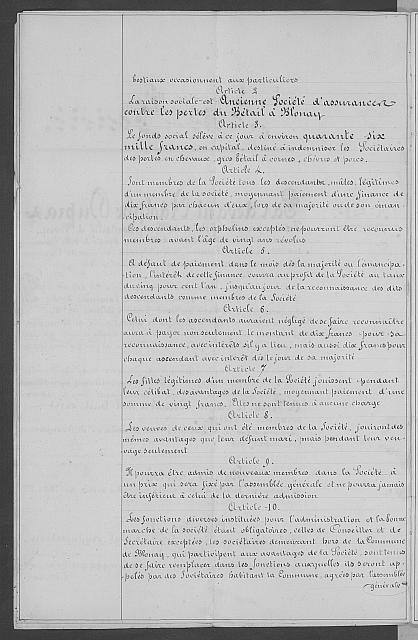 bestiaux occasionnent aux particuliers
Article 2
La raison sociale est Ancienne Société d'assurance
contre les pertes du Bétail à Blonay
Article 3.
Le fonds social s'élève à ce jour à environ quarante six
mille francs, en capital, destiné à indemniser les Sociétaires
des pertes en chevaux, gros bétail à cornes, chèvres et porcs.
Article 4.
Sont membres de la Société tous les descendants, mâles, légitimes
d'un membre de la société, moyennant paiement d'une finance de
dix francs par chacun d'eux, lors de sa majorité ou de son éman-
cipation
Ces descendants, les orphelins exceptés, ne pourront être reconnus
membres avant l'âge de vingt ans révolus
Article 5.
A défaut de paiement dans le mois dès la majorité ou l'émancipa-
tion, l'intérêt de cette finance courra au profit de la Société au taux
du cinq pour cent l'an, jusqu'au jour de la reconnaissance des dits
descendants comme membres de la Société
Article 6.
Celui dont les ascendants auraient négligé de se faire reconnaître
aura à payer non seulement le montant de dix francs pour sa
reconnaissance, avec intérêts s'il y a lieu, mais aussi dix francs pour
chaque ascendant avec intérêt dès le jour de sa majorité
Article 7
Les filles légitimes d'un membre de la Société jouissent pendant
leur célibat, des avantages de la Société, moyennant paiement d'une
somme de vingt francs. Elles ne sont tenues à aucune charge
Article 8.
Les veuves de ceux qui ont été membres de la Société, jouiront des
mêmes avantages que leur défunt mari, mais pendant leur veu-
vage seulement
Article 9.
Il pourra être admis de nouveaux membres dans la Société à
un prix qui sera fixé par l'assemblée générale et ne pourra jamais
être inférieur à celui de la dernière admission
Article 10.
Les fonctions diverses instituées pour l'administration et la bonne
marche de la société étant obligatoires, celles de Conseiller et de
Secrétaire exceptées, les sociétaires demeurant hors de la Commune
de Blonay, qui participent aux avantages de la Société, sont tenus
de se faire remplacer dans les fonctions auxquelles ils seront ap-
pelés par des Sociétaires habitant la Commune, agréés par l'assemblée
générale